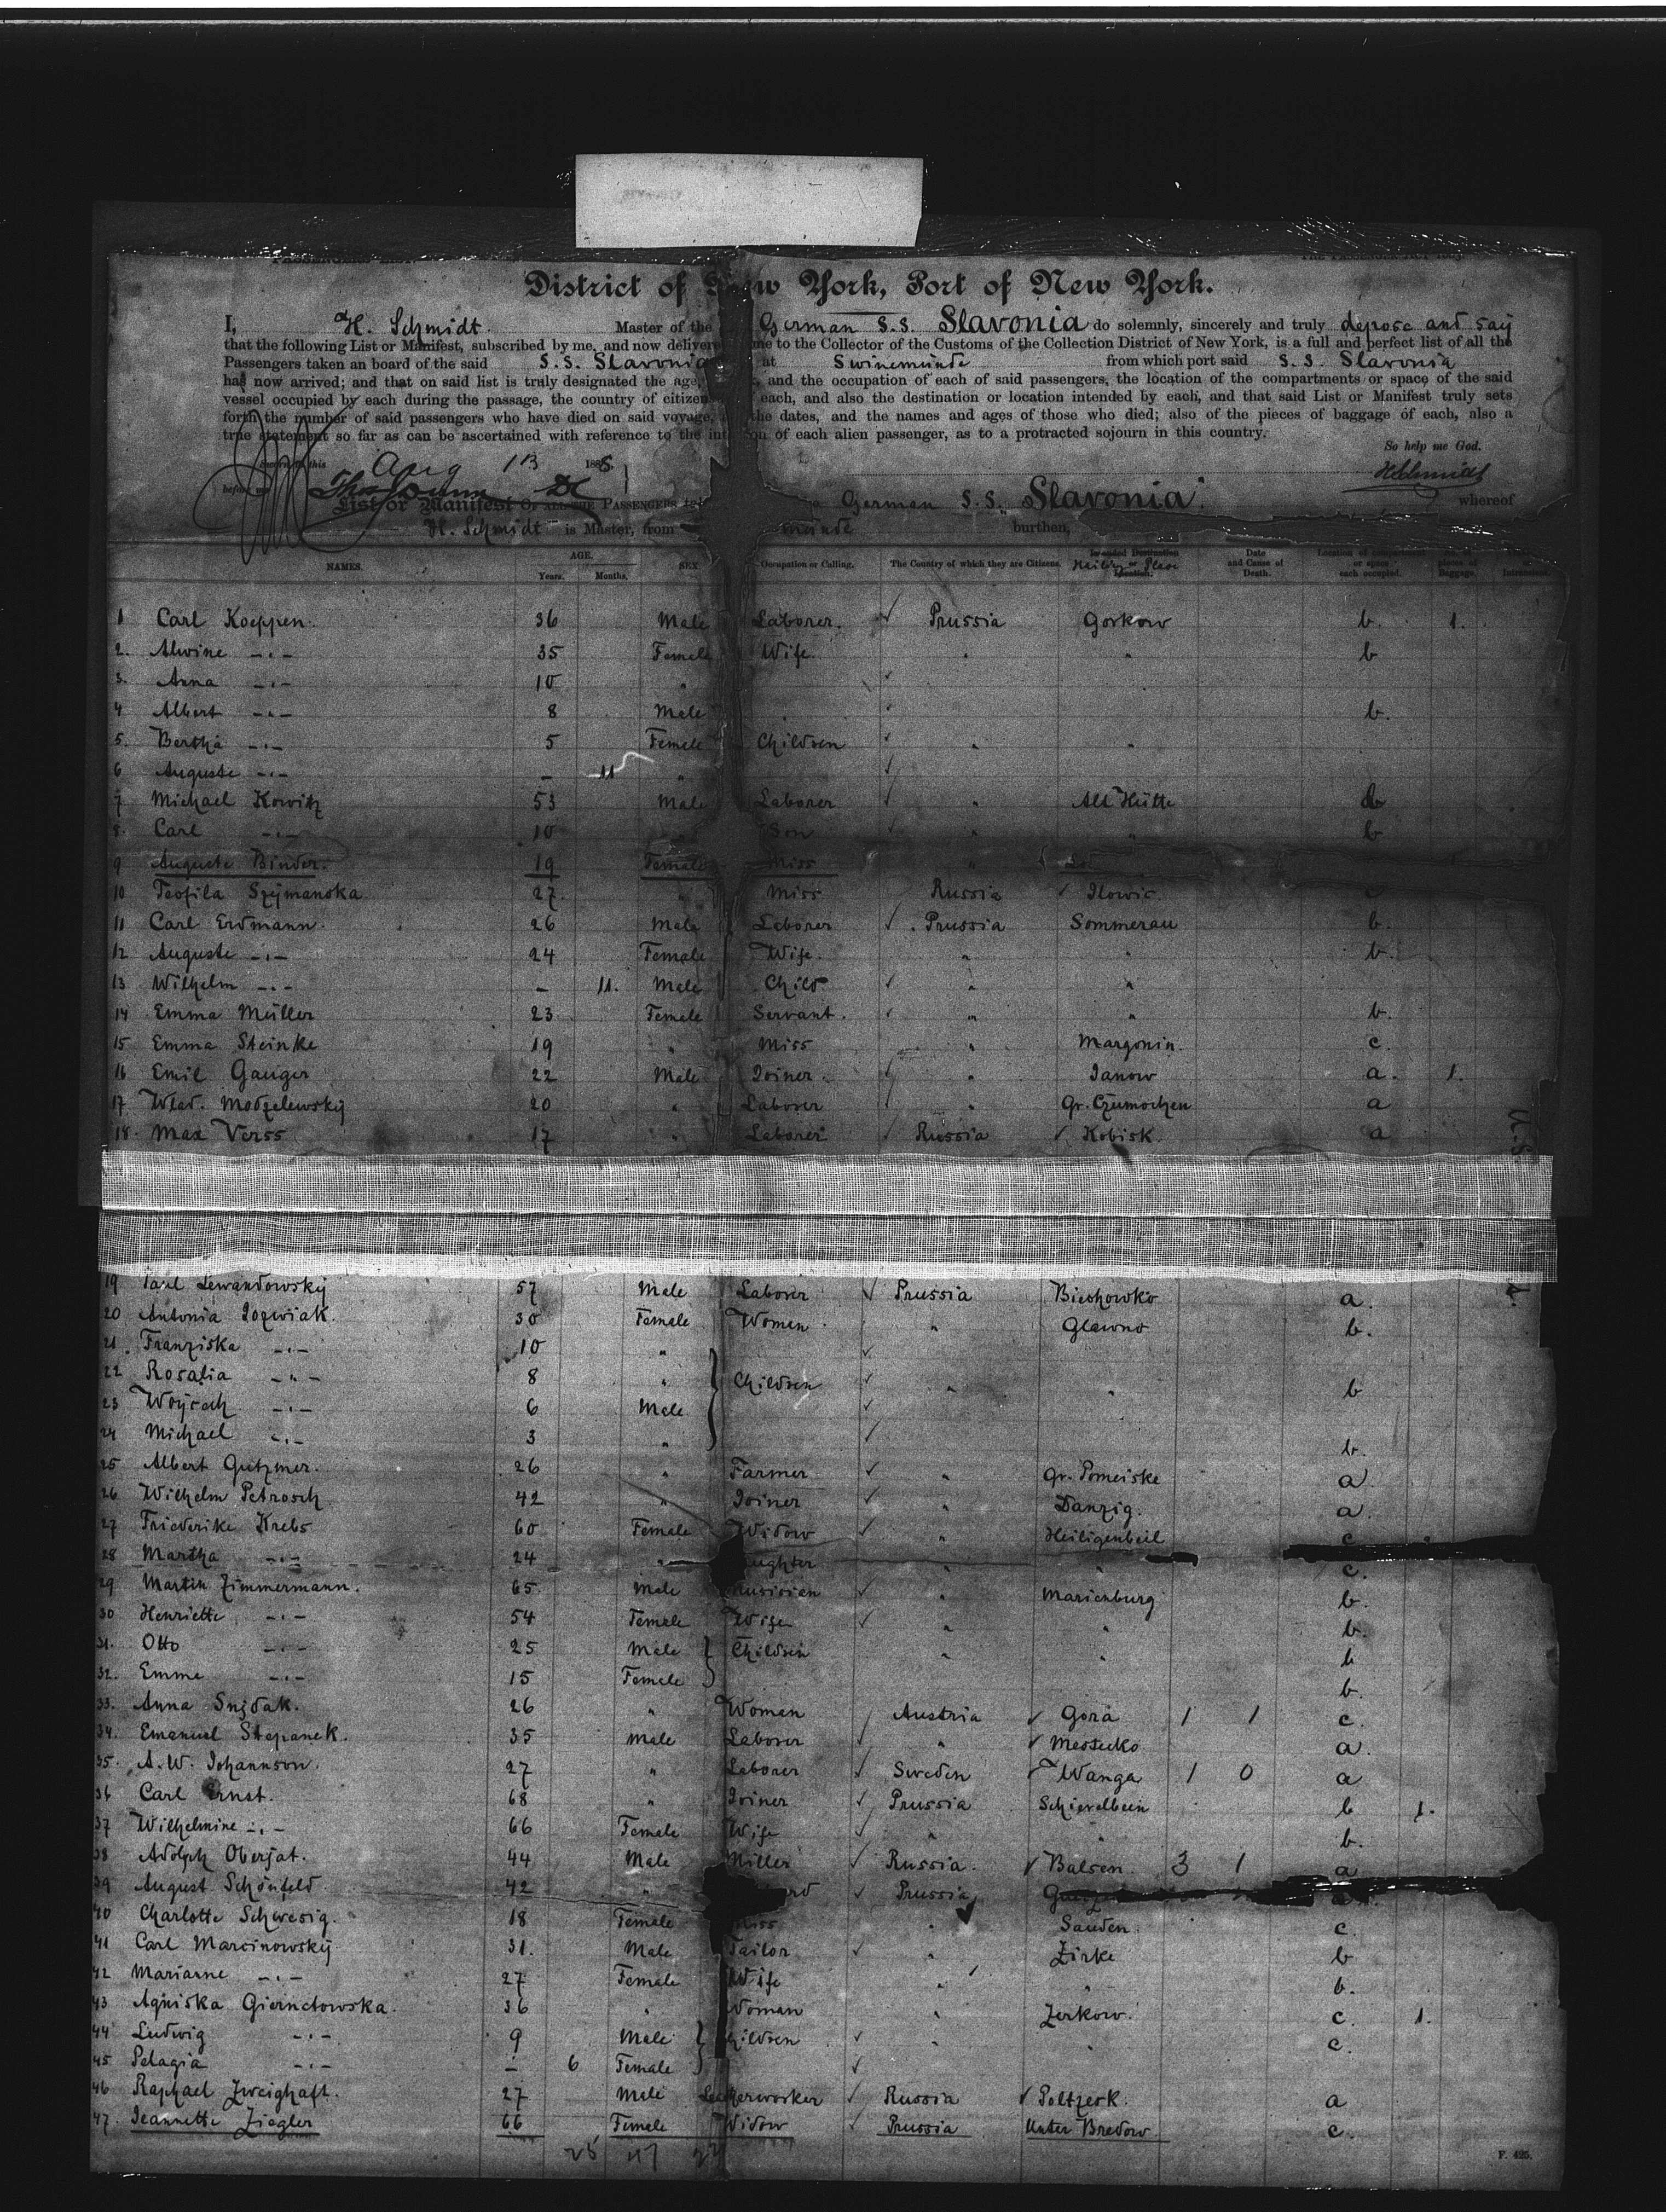 District of New York, Port of New York.
I, H. Schmidt. Master of the German S.S. Slavonia do solemnly, sincerely and truly depose and say
that the following List or Manifest, subscribed by me, and now delivered me to the Collector of the Customs of the Collection District of New York, is a full and perfect list of all the
Passengers taken on board of the said S.S. Slavonia at Swinemünde from which port said S.S. Slavonia
has now arrived; and that on said list is truly designated the age, and the occupation of each of said passengers, the location of the compartments or space of the said
vessel occupied by each during the passage, the country of citizen each, and also the destination or location intended by each, and that said List or Manifest truly sets
forth the number of said passengers who have died on said voyage, the dates, and the names and ages of those who died; also of the pieces of baggage of each, also a
true statement so far as can be ascertained with reference to the of each alien passenger, as to a protracted sojourn in this country.
So help me God.
Sworn to this Aug 13 188
before me HSchmidt
List or Manifest OF ALL THE PASSENGERS German S.S. Slavonia. whereof
H. Schmidt is Master, from burthen,
NAMES. AGE. Years. Months. SEX Occupation or Calling. The Country of which they are Citizens. Intended Destination or Location. Place Date and Cause of Death. Location of compartment or space each occupied. pieces of Baggage.
1 Carl Koeppen. 36 Male Laborer. Prussia Gorkow b. 1.
2. Alwine -"- 35 Female Wife. " " b
3. Anna -"- 10 "
4 Albert -"- 8 Male b.
5. Bertha -"- 5 Female Children " "
6 Auguste -"- – 11 "
7 Michael Kowitz 53 Male Laborer " Alt Hütte b
8. Carl -"- 10 Son " " b
9 Auguste Binder. 19 Female Miss "
10 Teofila Szymanska 27. " Miss Russia Ilowic. c
11 Carl Erdmann. 26 Male Laborer Prussia Sommerau b.
12 Auguste -"- 24 Female Wife. " " b.
13 Wilhelm -"- – 11. Male Child " "
14 Emma Müller 23 Female Servant. " " b.
15 Emma Steinke 19 " Miss " Margonin. c.
16 Emil Gauger 22 Male Joiner. " Janow a. 1.
17 Wlad. Modzelewsky 20 " Laborer " Gr. Czumochen a
18. Max Verss 17 " Laborer Russia Kobisk. a
19 Paul Lewandowsky 57 Male Laborer Prussia Bischowko a.
20 Antonia Jozwiak. 30 Female Woman " Glowno b.
21. Franziska -"- 10 "
22 Rosalia -"- 8 " Children " " b
23 Woyzech -"- 6 Male
24 Michael -"- 3 " b.
25 Albert Gutzmer. 26 " Farmer " Gr. Pomeiske a
26 Wilhelm Petrosch 42 " Joiner " Danzig. a.
27 Friederike Krebs 60 Female Widow " Heiligenbeil c
28 Martha -"- 24 " " " c.
29 Martin Zimmermann. 65. Male Musician " Marienburg b.
30 Henriette -"- 54 Female Wife " " b.
31. Otto -"- 25 Male Children " " b
32. Emma -"- 15 Female b.
33. Anna Snjdak. 26 " Woman Austria Gora 1 1 c.
34. Emanuel Stepanek. 35 Male Laborer " Mestecko a.
35. A.W. Johannson. 27 " Laborer Sweden Wanga 1 0 a
36 Carl Ernst. 68 " Joiner Prussia Schievelbein b 1.
37 Wilhelmine -"- 66 Female Wife " " b.
38 Adolph Oberjat. 44 Male Miller Russia. Balsen 3 1 a
39 August Schönfeld 42 " Prussia
40 Charlotte Schwesig. 18 Female Miss " Sauden. c.
41 Carl Marcinowsky 31. Male Tailor " Zirke b
42 Marianne -"- 27 Female Wife " " b.
43 Agniska Giernetowska. 36 " Woman " Zerkow. c. 1.
44 Ludwig -"- 9 Male Children " " c.
45 Pelagia -"- – 6 Female
46 Raphael Zweighaft. 27 Male Leatherworker Russia Poltzesk. a
47. Jeannette Ziegler 66 Female Widow Prussia Unter Bredow c.
F. 425.